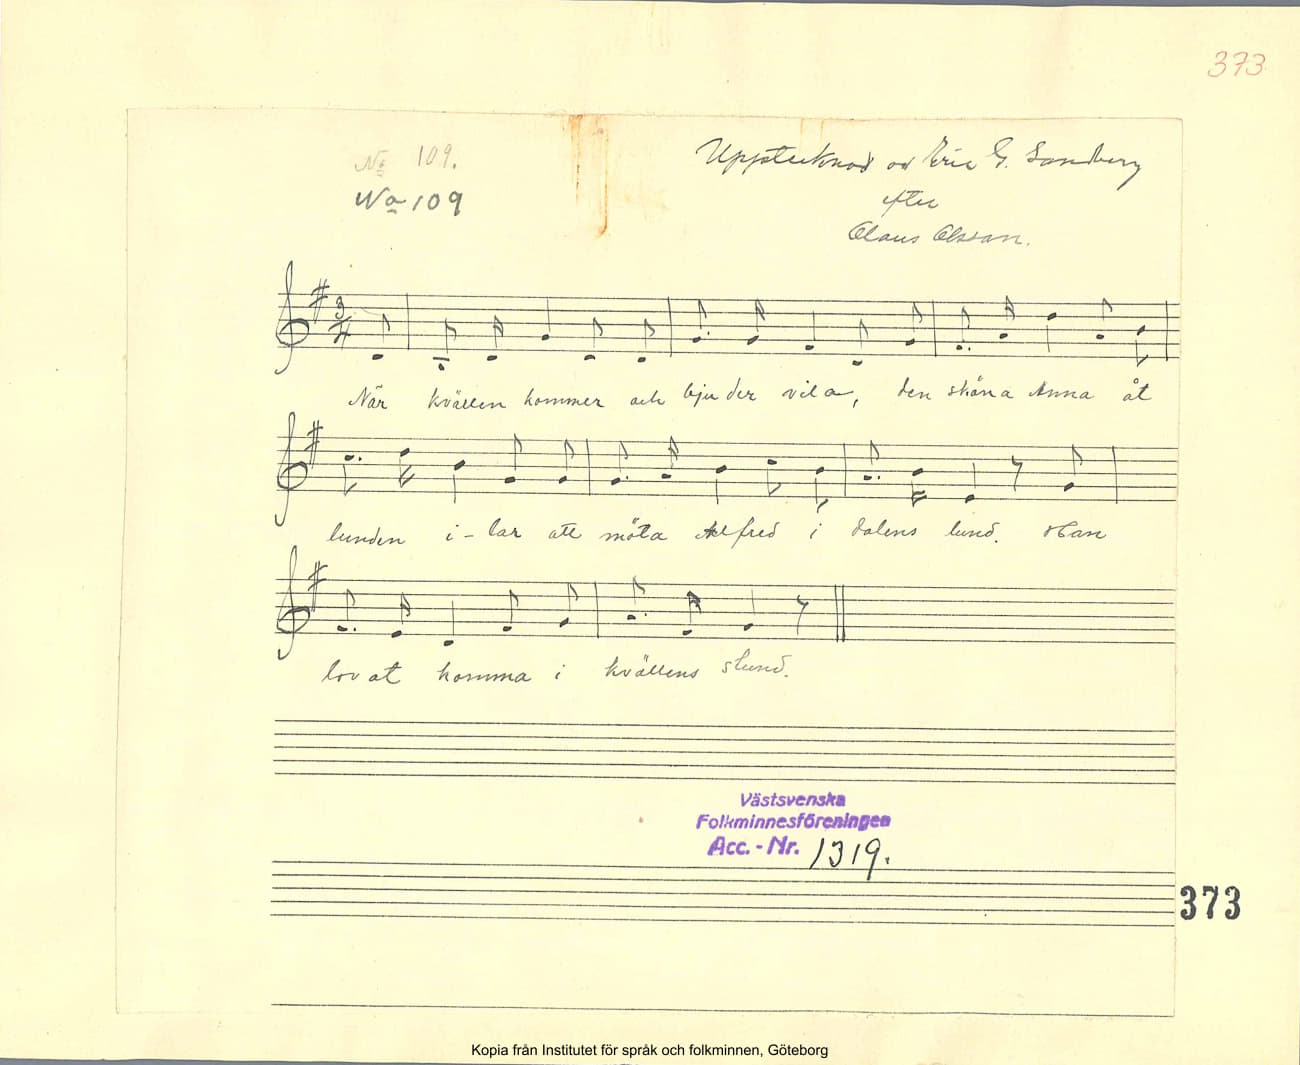 373
No 109.
No 109
Upptecknad av Eric G. Sandberg
efter
Claus Olsson.
3/4
När kvällen kommer och bjuder vila, den sköna Anna åt
lunden i-lar att möta Alfred i dalens lund. Han
lovat komma i kvällens stund.
Västsvenska
Folkminnesföreningen
Acc.-Nr. 1319.
373
Kopia från Institutet för språk och folkminnen, Göteborg